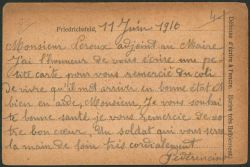 Friedrichsfeld, 11 Juin 1916
Monsieur Leroux adjoint au Maire
J'ai l'honneur de vous écrire une pe
tite carte pour vous remercié du coli
de vivre qu'il m'est arrivé en bonne état et
bien en aide, Monsieur, Je vous souhait
te bonne santé je vous remercie de vo
tre bon cœur. Un soldat qui vous serre
la main de loin très cordialement
Défense d'écrire à l'encre. Ecrire très lisiblement.